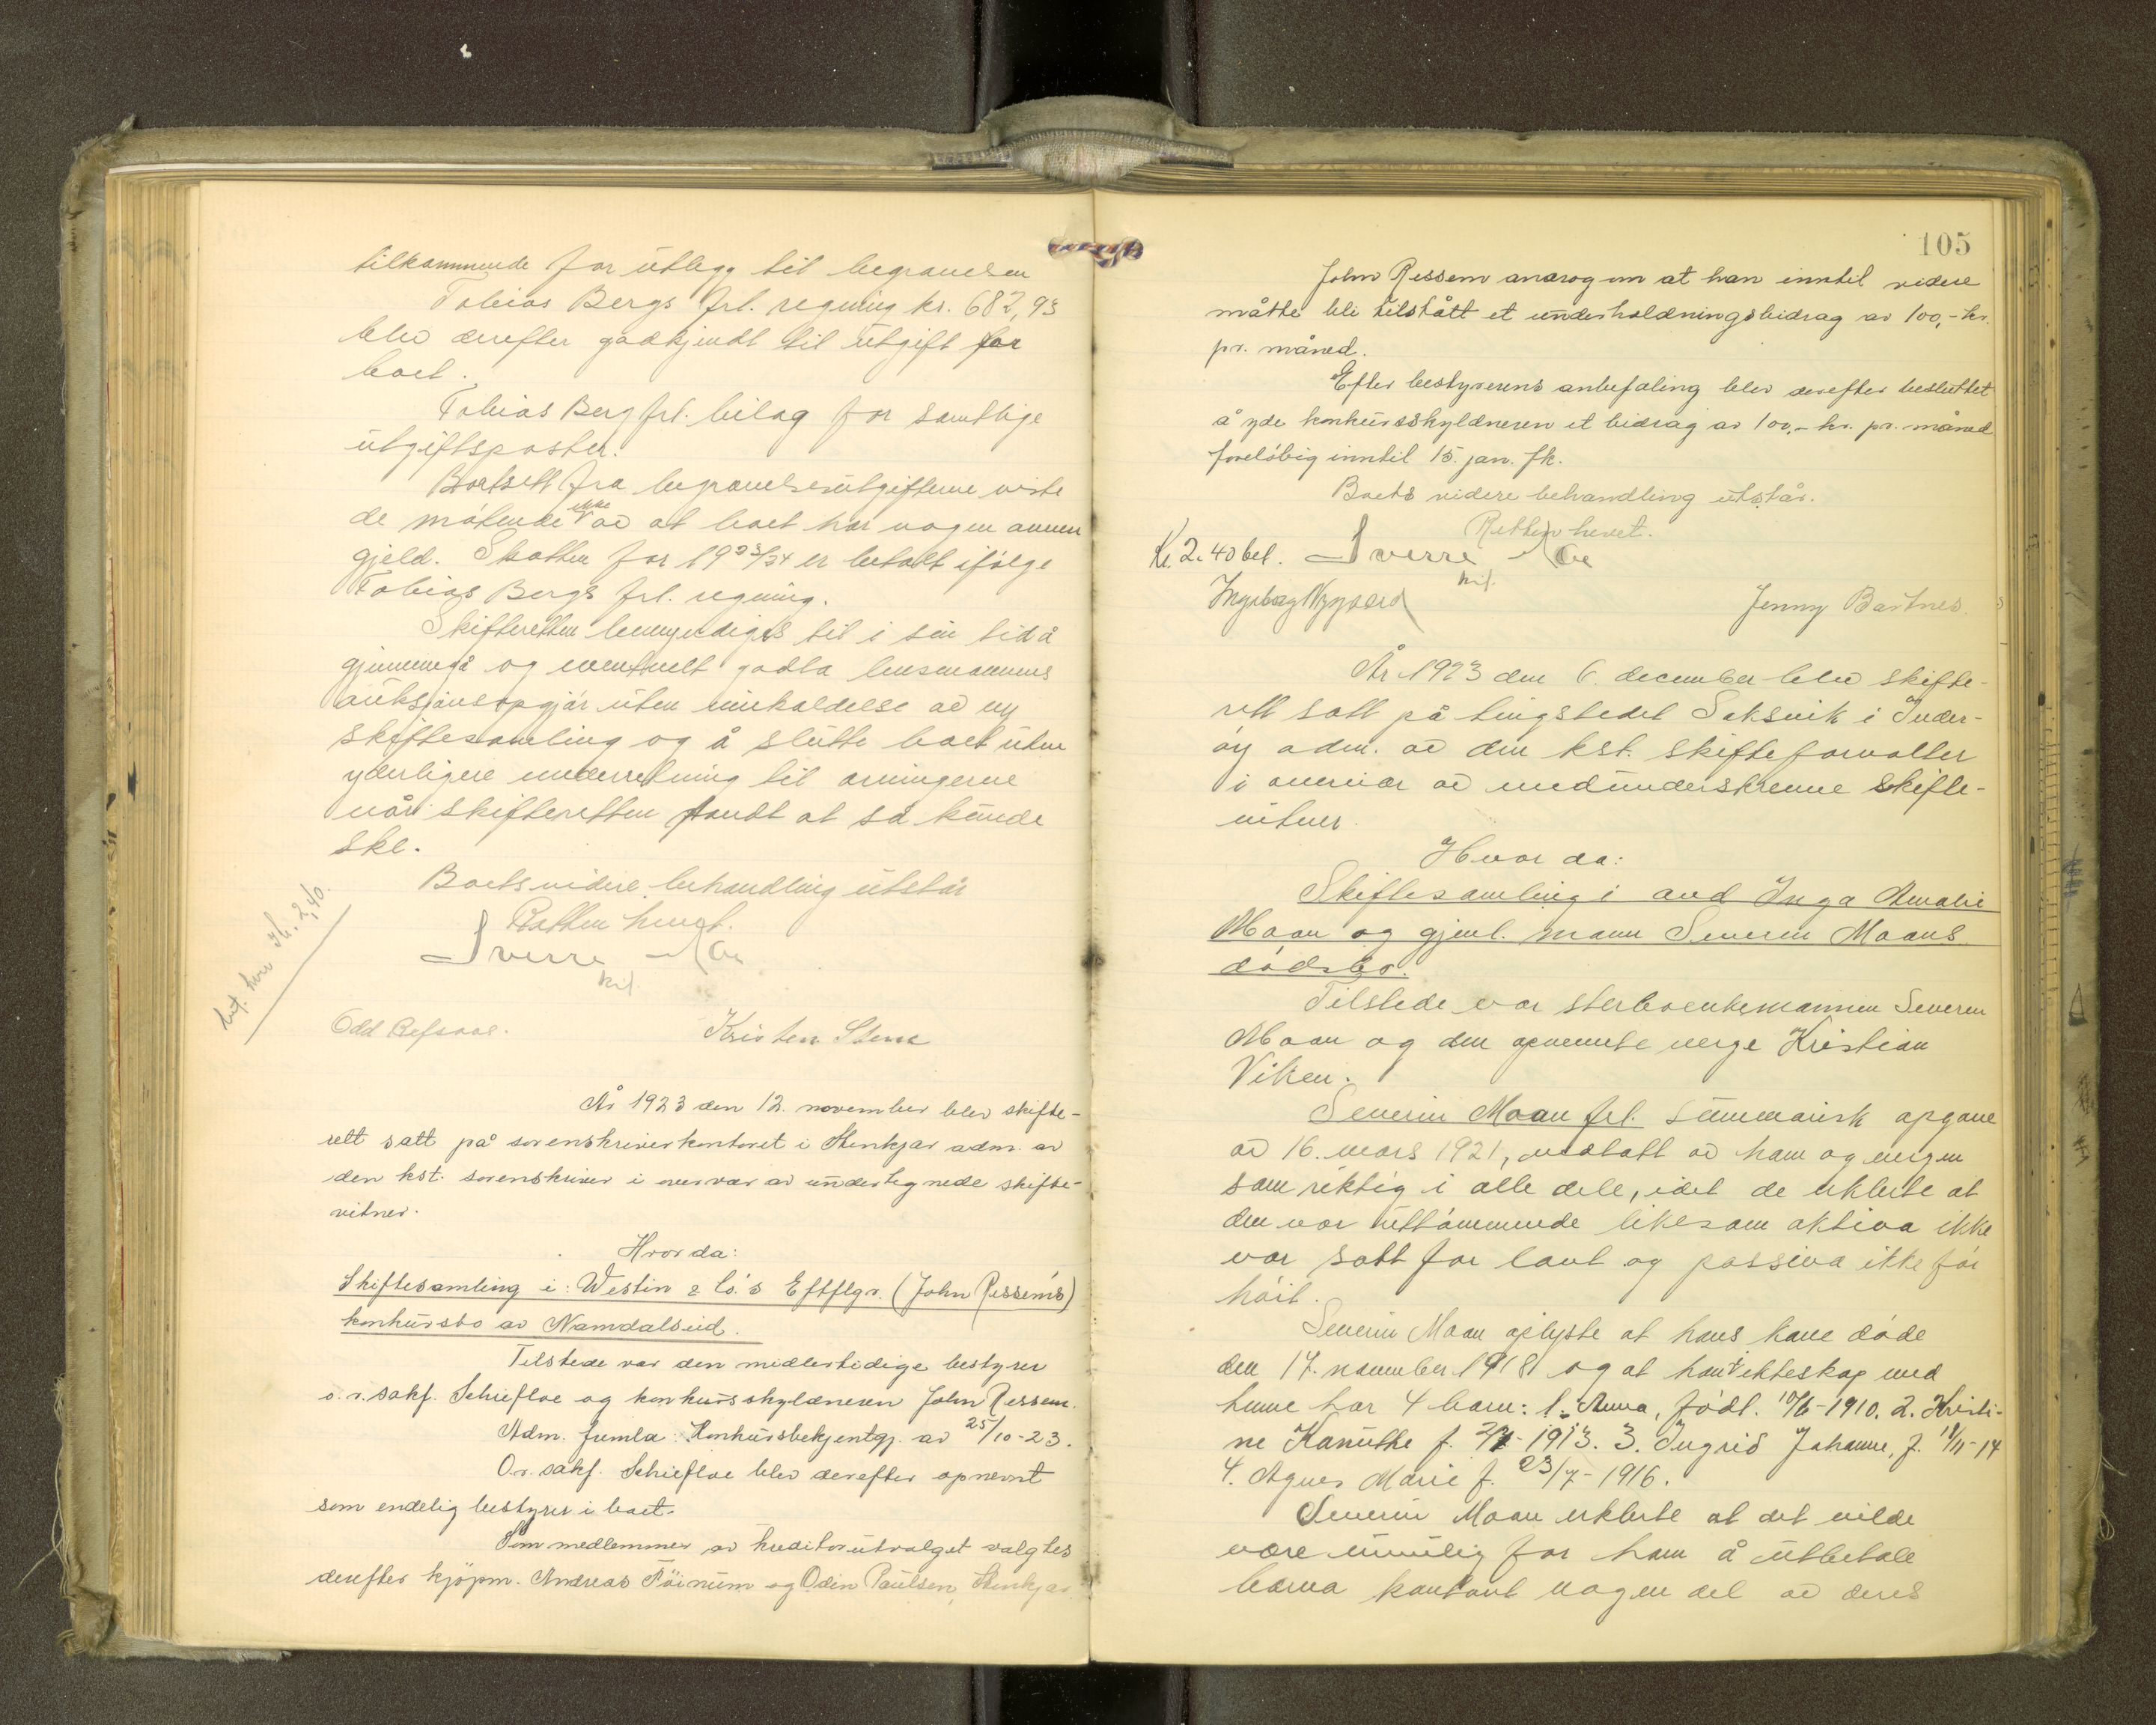 tilkommende for utlegg til begravelsen
Tobias Bergs frl. regning kr. 682,93
blev derefter godkjendt til utgift for
boet.
Tobias Berg frl. bilag for samtlige
utgiftsposter.
Bortsett fra begravelsesutgiftene visste
de møtende ikke av at boet har nogen annen
gjeld. Skatten for 1923/24 er betalt ifølge
Tobias Bergs frl. regning.
Skifteretten bemyndiges til i sin tid å
gjennemgå og eventuelt godta lensmannens
auksjonsopgjør uten innkaldelse av ny
skiftesamling og å slutte boet uten
yderligere underretning til arvingerne
når skifteretten fandt at så kunde
ske.
Boets videre behandling utstår
Retten hevet.
Sverre Moe
kst.
bet. herv kr. 2,40.
Odd Refsaas. Kristen Stene
År 1923 den 12. november blev skifte-
rett satt på sorenskriverkontoret i Stenkjær adm. av
den kst. sorenskriver i overvær av undertegnede skifte-
vitner.
Hvor da:
Skiftesamling i: Westin & Co.'s Eftflgr. (John Ressem's)
konkursbo av Namdalseid.
Tilstede var den midlertidige bestyrer
o.r.sakf. Schiefloe og konkursskyldneren John Ressem.
Adm. fremla: Konkursbekjentgj. av 25/10-23.
O.r.sakf. Schiefloe blev derefter opnevnt
som endelig bestyrer i boet.
Som medlemmer av kreditorutvalget valgtes
derefter kjøpm. Andreas Föinum og Odin Paulsen, Stenkjær
105
John Ressem androg om at han inntil videre
måtte bli tilstått et underholdningsbidrag av 100,- kr.
pr. måned.
Efter bestyrerens anbefaling blev derefter besluttet
å yde konkursskyldneren et bidrag av 100,- kr. pr. måned
foreløbig inntil 15. jan. fk.
Boets videre behandling utstår.
Retten hevet.
Kr. 2.40 bet. Sverre Moe
kst.
Ingeborg Nygaard Jenny Bartnes.
År 1923 den 6. december blev skifte-
rett satt på tingstedet Saksvik i Inder-
øy adm. av den kst. skifteforvalter
i overvær av medunderskrevne skifte-
vitner.
Hvor da:
Skiftesamling i avd Inga Amalie
Moan og gjenl. mann Severin Moans
dødsbo.
Tilstede var sterboenkemannen Severin
Moan og den opnevnte verge Kristian
Viken.
Severin Moan frl. summarisk opgave
av 16. mars 1921, vedtatt av ham og vergen
som riktig i alle dele, idet de erklerte at
den var uttømmende likesom aktiva ikke
var satt for lavt og passiva ikke for
høit.
Severin Moan oplyste at hans kone døde
den 17. november 1918 og at han i ekteskap med
henne har 4 barn: 1. Anna, født. 10/6-1910. 2. Kristi-
ne Kanutte f. 1913. 3. Ingrid Johanne, f. 11/11-14
4. Agnes Marie f. 23/7-1916.
Severin Moan erklerte at det vilde
være umulig for ham å utbetale
barna kontant nogen del av deres